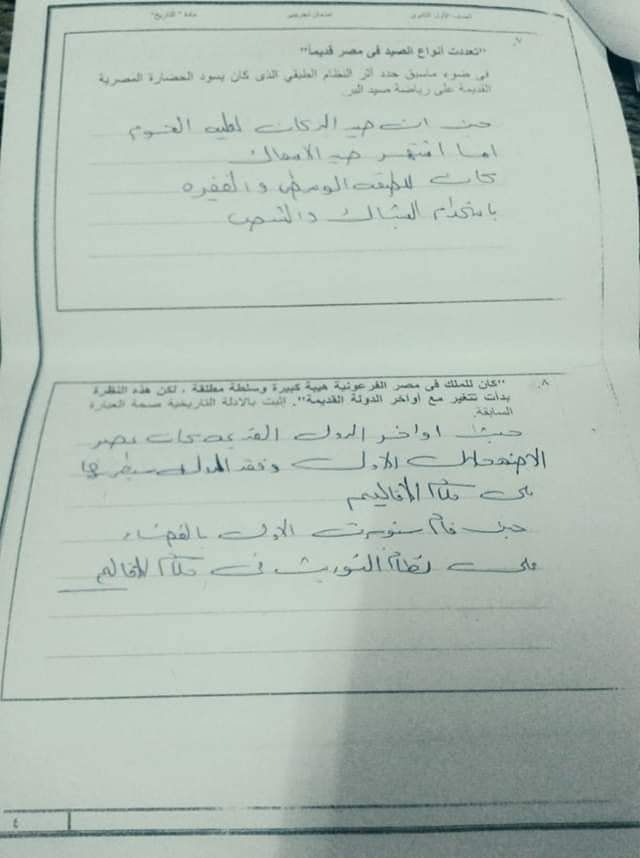 الصف الأول الثانوى امتحان تجريبى مادة "التاريخ"
٧.
"تعددت أنواع الصيد فى مصر قديماً"
فى ضوء ماسبق حدد أثر النظام الطبقي الذى كان يسود الحضارة المصرية
القديمة على رياضة صيد البر.
حيث ان صيد كان لطبقه
اما اشتهر صيد الاسماك
كان للطبقه الوسطى والفقيره
باستخدام الشباك والشص
٨. "كان للملك فى مصر الفرعونية هيبة كبيرة وسلطة مطلقة ، لكن هذه النظرة
بدأت تتغير مع أواخر الدولة القديمة". إثبت بالادلة التاريخية صحة العبارة
السابقة.
حيث اواخر الدوله القديمه كانت عصر
الاضمحلال الاول وفقد الملوك سيطرتها
على حكام الأقاليم
حيث قام سنوسرت الاول بالقضاء
على نظام التوريث فى حكام الاقاليم
٤